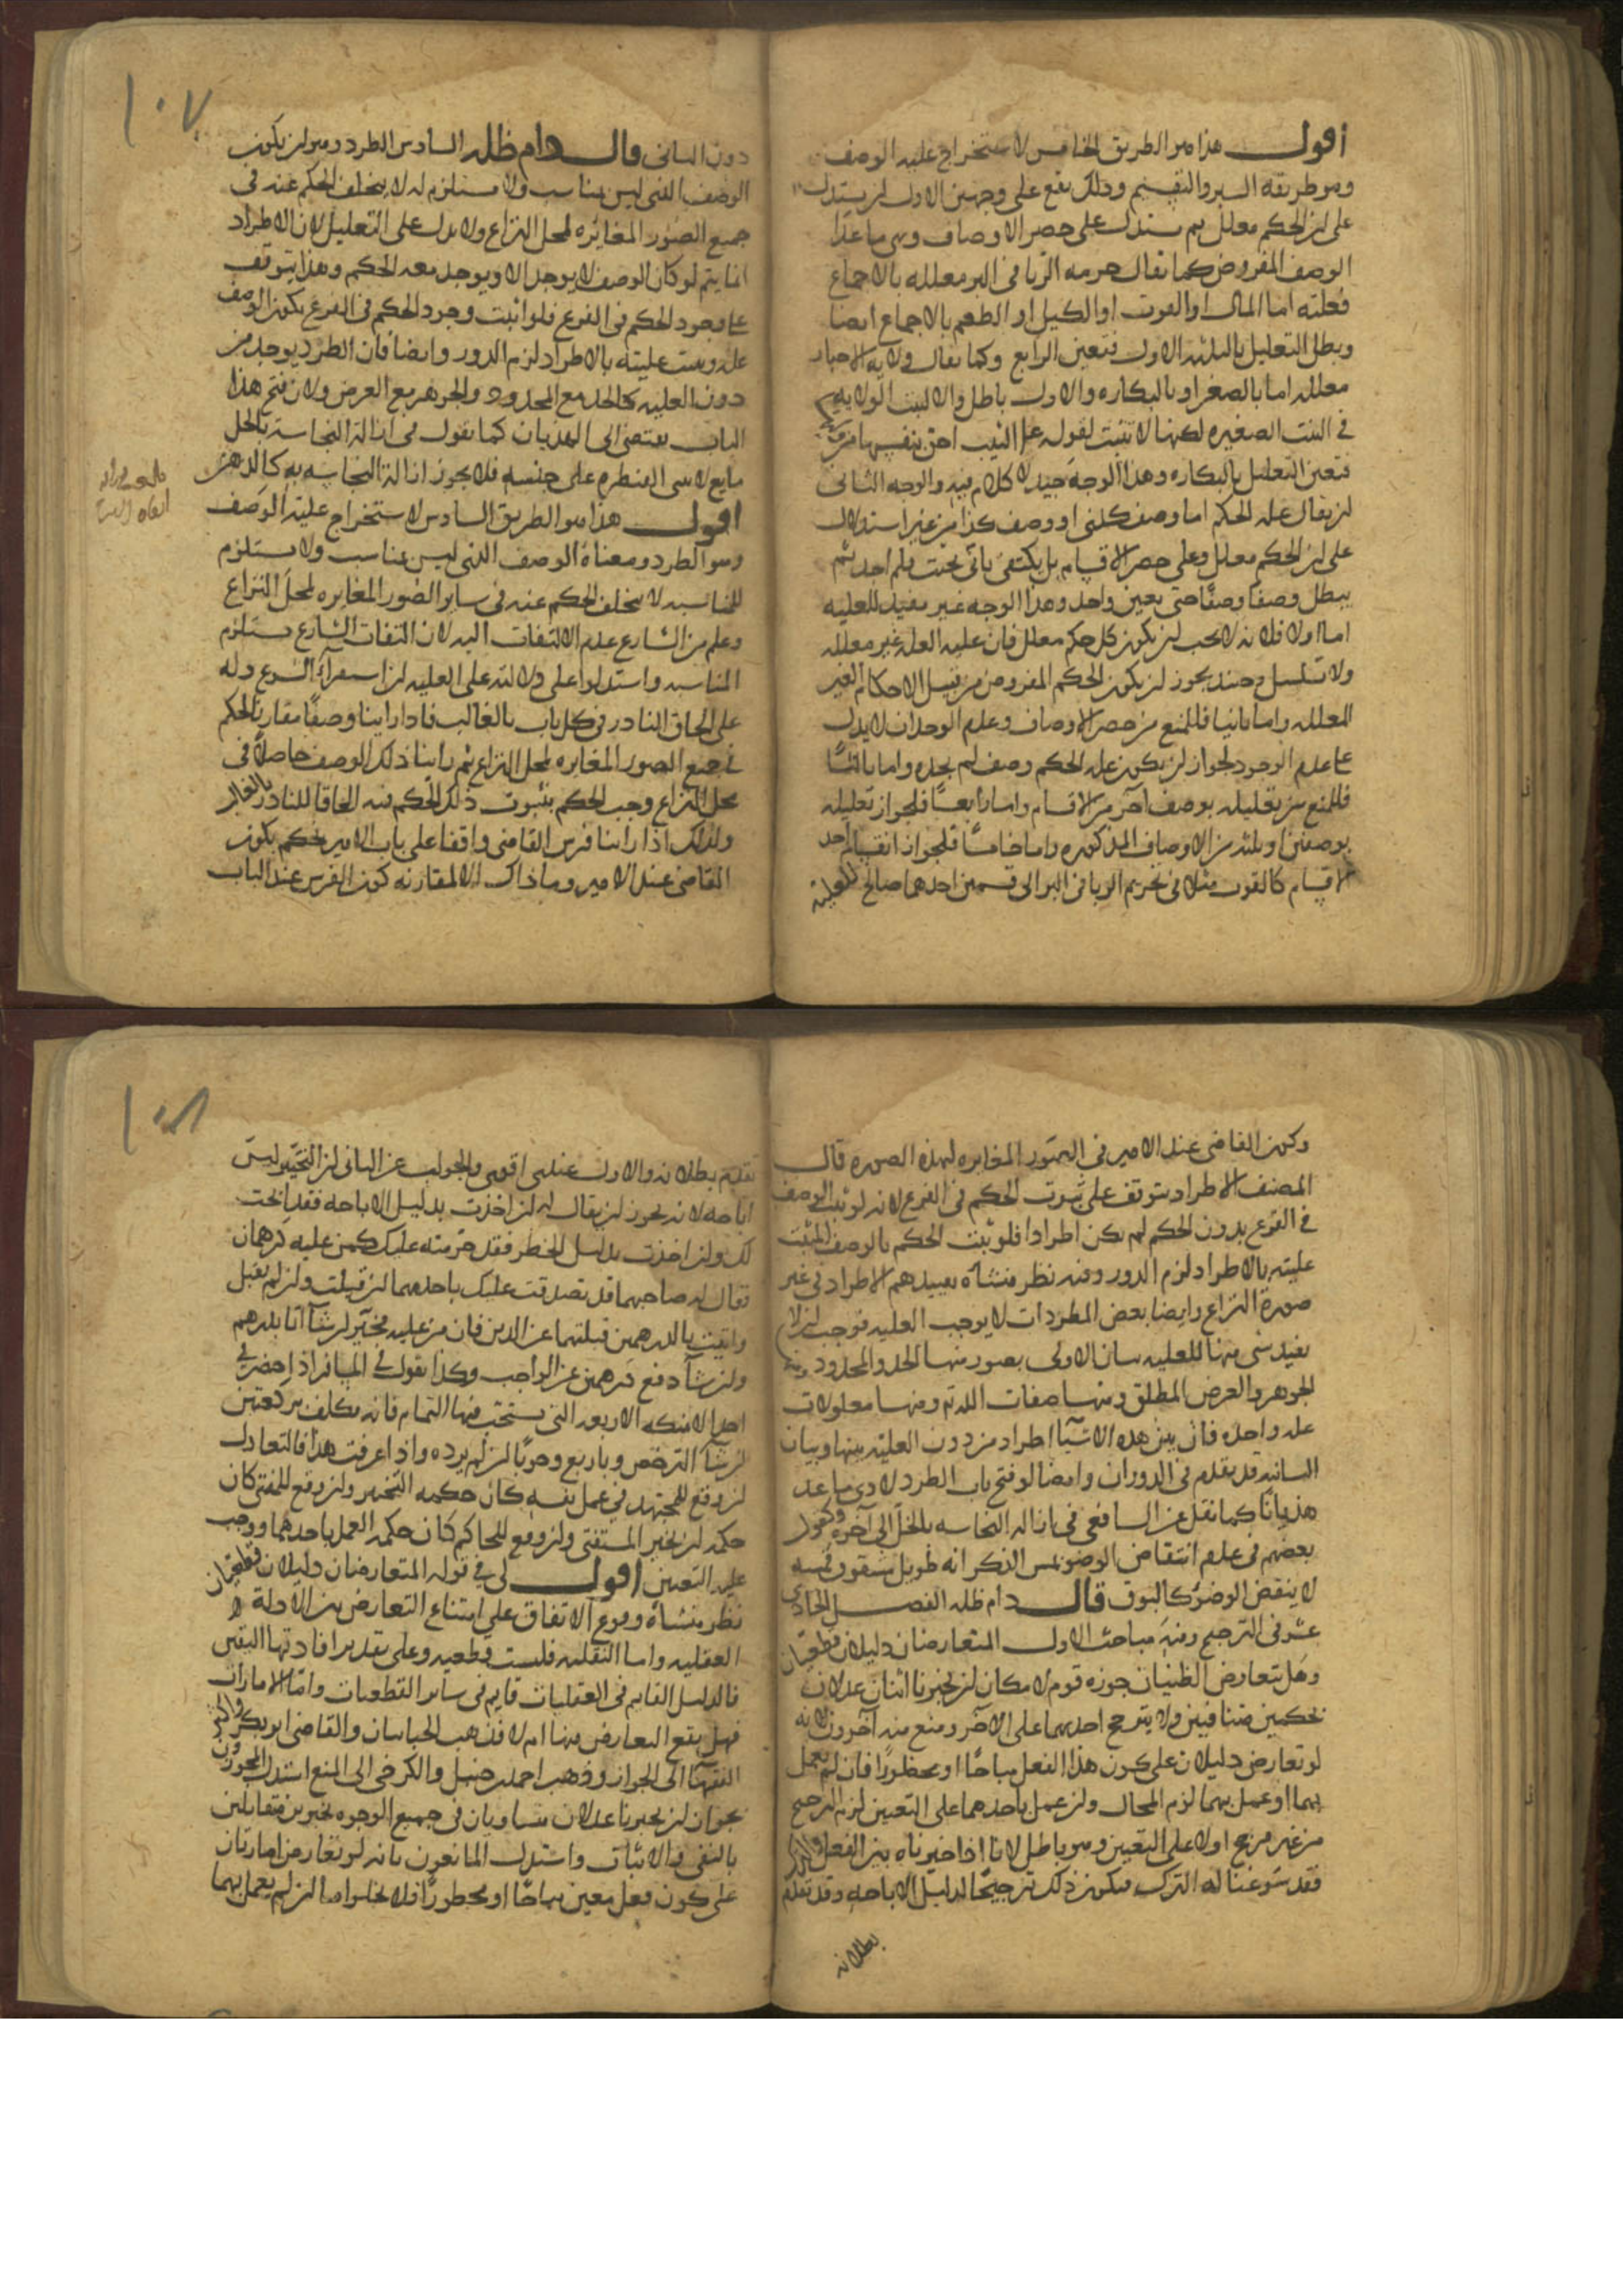 أقول هذا هو الطريق الخامس لاستخراج علية الوصف
وهو طريقه السبر والتقسيم وذلك يقع على وجهين الاول ان يستدل
على ان الحكم معلل ثم يستدل على حصر الاوصاف وهى ما عدا
الوصف المفروض كما يقال حرمه الربا فى البر معلله بالاجماع
فعلته اما المال او القوت او الكيل او الطعم بالاجماع ايضا
وبطل التعليل بالثلثه الاول فتعين الرابع وكما يقال ولايه الاجبار
معلله اما بالصغر او بالبكاره والاول باطل والا لثبت الولايه
فى الثيب الصغيره لكنها لا تثبت لقوله عم الثيب احق بنفسها من وليها
فتعين التعليل بالبكاره وهذا الوجه جيد لا كلام فيه والوجه الثانى
ان يقال عله الحكم اما وصف كذا او وصف كذا من غير استدلال
على ان الحكم معلل وعلى حصر الاقسام بل يكتفى بانى بحثت فلم اجد ثم
يبطل وصفا وصفا حتى يعين واحد وهذا الوجه غير مفيد للعليه
اما اولا فلانه لا يجب ان يكون كل حكم معلل فان عليه العله غير معلله
ولا تسلسل وحينئذ يجوز ان يكون الحكم المفروض من قبيل الاحكام الغير
المعلله واما ثانيا فللمنع من حصر الاوصاف وعدم الوجدان لا يدل
على عدم الوجود لجواز ان يكون عله الحكم وصف لم يجده واما ثالثا
فللمنع من تعليله بوصف آخر من الاقسام واما رابعا فلجواز تعليله
بوصفين او بثلثه من الاوصاف المذكوره واما خامسا فلجواز انقسام احد
الاقسام كالقوت مثلا فى تحريم الربا فى البر الى قسمين احدهما صالح للعلية
١٠٧
دون الثانى قال دام ظله السادس الطرد وهو ان يكون
الوصف الذى ليس بمناسب ولا مستلزم له لا يتخلف الحكم عنه فى
جميع الصور المغايره لمحل النزاع ولا يدل على التعليل لان الاطراد
انما يتم لو كان الوصف لا يوجد الا ويوجد معه الحكم وهذا يتوقف
على وجود الحكم فى الفرع فلو اثبت وجود الحكم فى الفرع بكون الوصف
عله وبينت عليته بالاطراد لزم الدور وايضا فان الطرد يوجد من
دون العليه كالحد مع المحدود والجوهر مع العرض ولان فتح هذا
الباب يفضى الى الهذيان كما يقول فى ازالة النجاسة بالخل
مايع لا يبنى القنطره على جنسه فلا يجوز ازالة النجاسه به كالدهن
اقول هذا هو الطريق السادس لاستخراج علية الوصف
وهو الطرد ومعناه الوصف الذى ليس بمناسب ولا مستلزم
للمناسبه لا يتخلف الحكم عنه فى ساير الصور المغايره لمحل النزاع
وعلم من الشارع عدم الالتفات اليه لان التفات الشارع يستلزم
المناسبه واستدلوا على دلالته على العليه ان استقراء الشرع دله
على الحاق النادر فى كل باب بالغالب فاذا راينا وصفا مقارنا للحكم
فى جميع الصور المغايره لمحل النزاع ثم راينا ذلك الوصف حاصلا فى
محل النزاع وجب الحكم بثبوت ذلك الحكم فيه الحاقا للنادر بالغالب
ولذلك اذا راينا فرس القاضى واقفا على باب الامير حكم بكون
القاضى عند الامير وما ذاك الا لمقارنه كون الفرس عند الباب
وكون القاضى عند الامير فى الصور المغايره لهذه الصوره قال
المصنف الاطراد يتوقف على ثبوت الحكم فى الفرع لانه لو ثبت الوصف
فى الفرع بدون الحكم لم يكن اطرادا فلو يثبت الحكم بالوصف المثبت
عليته بالاطراد لزم الدور وفيه نظر منشاه تقييدهم الاطراد فى غير
صورة النزاع وايضا بعض المطردات لا يوجب العليه فوجب ان لا
يفيد شى منها للعليه بيان الاولى بصور منها الحد والمحدود ومنها
الجوهر والعرض المطلق ومنها صفات الله تع ومنها معلولات
عله واحدة فان بين هذه الاشيآ اطراد من دون العلية بينها وبيان
الثانيه قد تقدم فى الدوران وايضا لو فتح باب الطرد لادى ما عد
هذيانا كما نقل عن الشافعى فى ازاله النجاسه بالخل الى آخره وكقول
بعضهم فى عدم انتقاض الوضو بمس الذكر انه طويل مشقوق فمسه
لا ينقض الوضوء كالبوق قال دام ظله الفصل الحادى
عشر فى الترجيح وفيه مباحث الاول المتعارضان دليلان قطعيان
وهل يتعارض الظنيان جوزه قوم لامكان ان يخبرنا اثنان عدلان
بحكمين متنافيين ولا يترجح احدهما على الآخر ومنع منه آخرون لانه
لو تعارض دليلان على كون هذا الفعل مباحا او محظورا فان لم يعمل
بهما او عمل بهما لزم المحال وان عمل باحدهما على التعيين لزم الترجيح
من غير مرجح او لا على التعيين وهو باطل لانا اذا خيرناه بين الفعل والترك
فقد سوغنا له الترك فيكون ذلك ترجيحا لدليل الاباحه وقد تقدم
بطلانه
١٠٨
تقدم بطلانه والاول عندى اقوى والجواب عن الثانى ان التخيير ليس
اباحه لانه يجوز ان يقال له ان اخذت بدليل الاباحه فقد ابحت
لك وان اخذت بدليل الحظر فقد حرمته عليك كمن عليه درهمان
فقال له صاحبهما قد تصدقت عليك باحدهما ان قبلت وان لم تقبل
واتيت بالدرهمين قبلتهما عن الدين فان من عليه مخير ان شآ اتا بدرهم
وان شآ دفع درهمين عن الواجب وكذا يقول فى المسافر اذا حضر فى
احد الامكنه الاربعه التى يستحب فيها التمام فانه مكلف بركعتين
ان شآ الترخص وباربع وجوبا ان لم يرده واذا عرفت هذا فالتعادل
ان وقع للمجتهد فى عمل نفسه كان حكمه التخيير وان وقع للمفتى كان
حكمه ان يخير المستفتى وان وقع للحاكم كان حكمه العمل باحدهما ووجب
عليه التعيين اقول لى فى قوله المتعارضان دليلان قطعيان
نظر منشأه وقوع الاتفاق على امتناع التعارض بين الادلة
العقليه واما النقليه فليست قطعيه وعلى تقدير افادتها اليقين
فالدليل القايم فى العقليات قايم فى ساير القطعيات واما الامارات
فهل يقع التعارض فيها ام لا فذهب الجبائيان والقاضى ابو بكر واكثر
الفقهآ الى الجواز وذهب احمد بن حنبل والكرخى الى المنع استدل المجوزون
بجواز ان يخبرنا عدلان متساويان فى جميع الوجوه بخبرين متقابلين
بالنفى والاثبات واستدل المانعون بانه لو تعارض امارتان
على كون فعل معين مباحا او محظورا فلا يخلو اما ان لم يعمل بهما